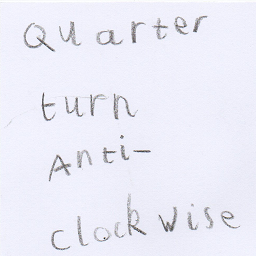 Quarter
turn
Anti-
clockwise